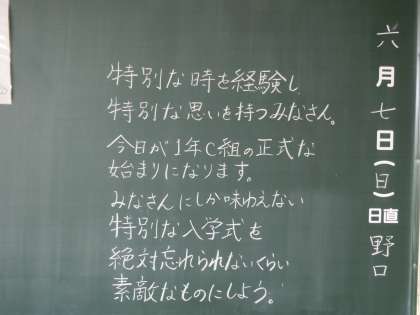 六月七日(日)
日直 野口
特別な時を経験し
特別な思いを持つみなさん。
今日が1年C組の正式な
始まりになります。
みなさんにしか味わえない
特別な入学式を
絶対忘れられないくらい
素敵なものにしよう。